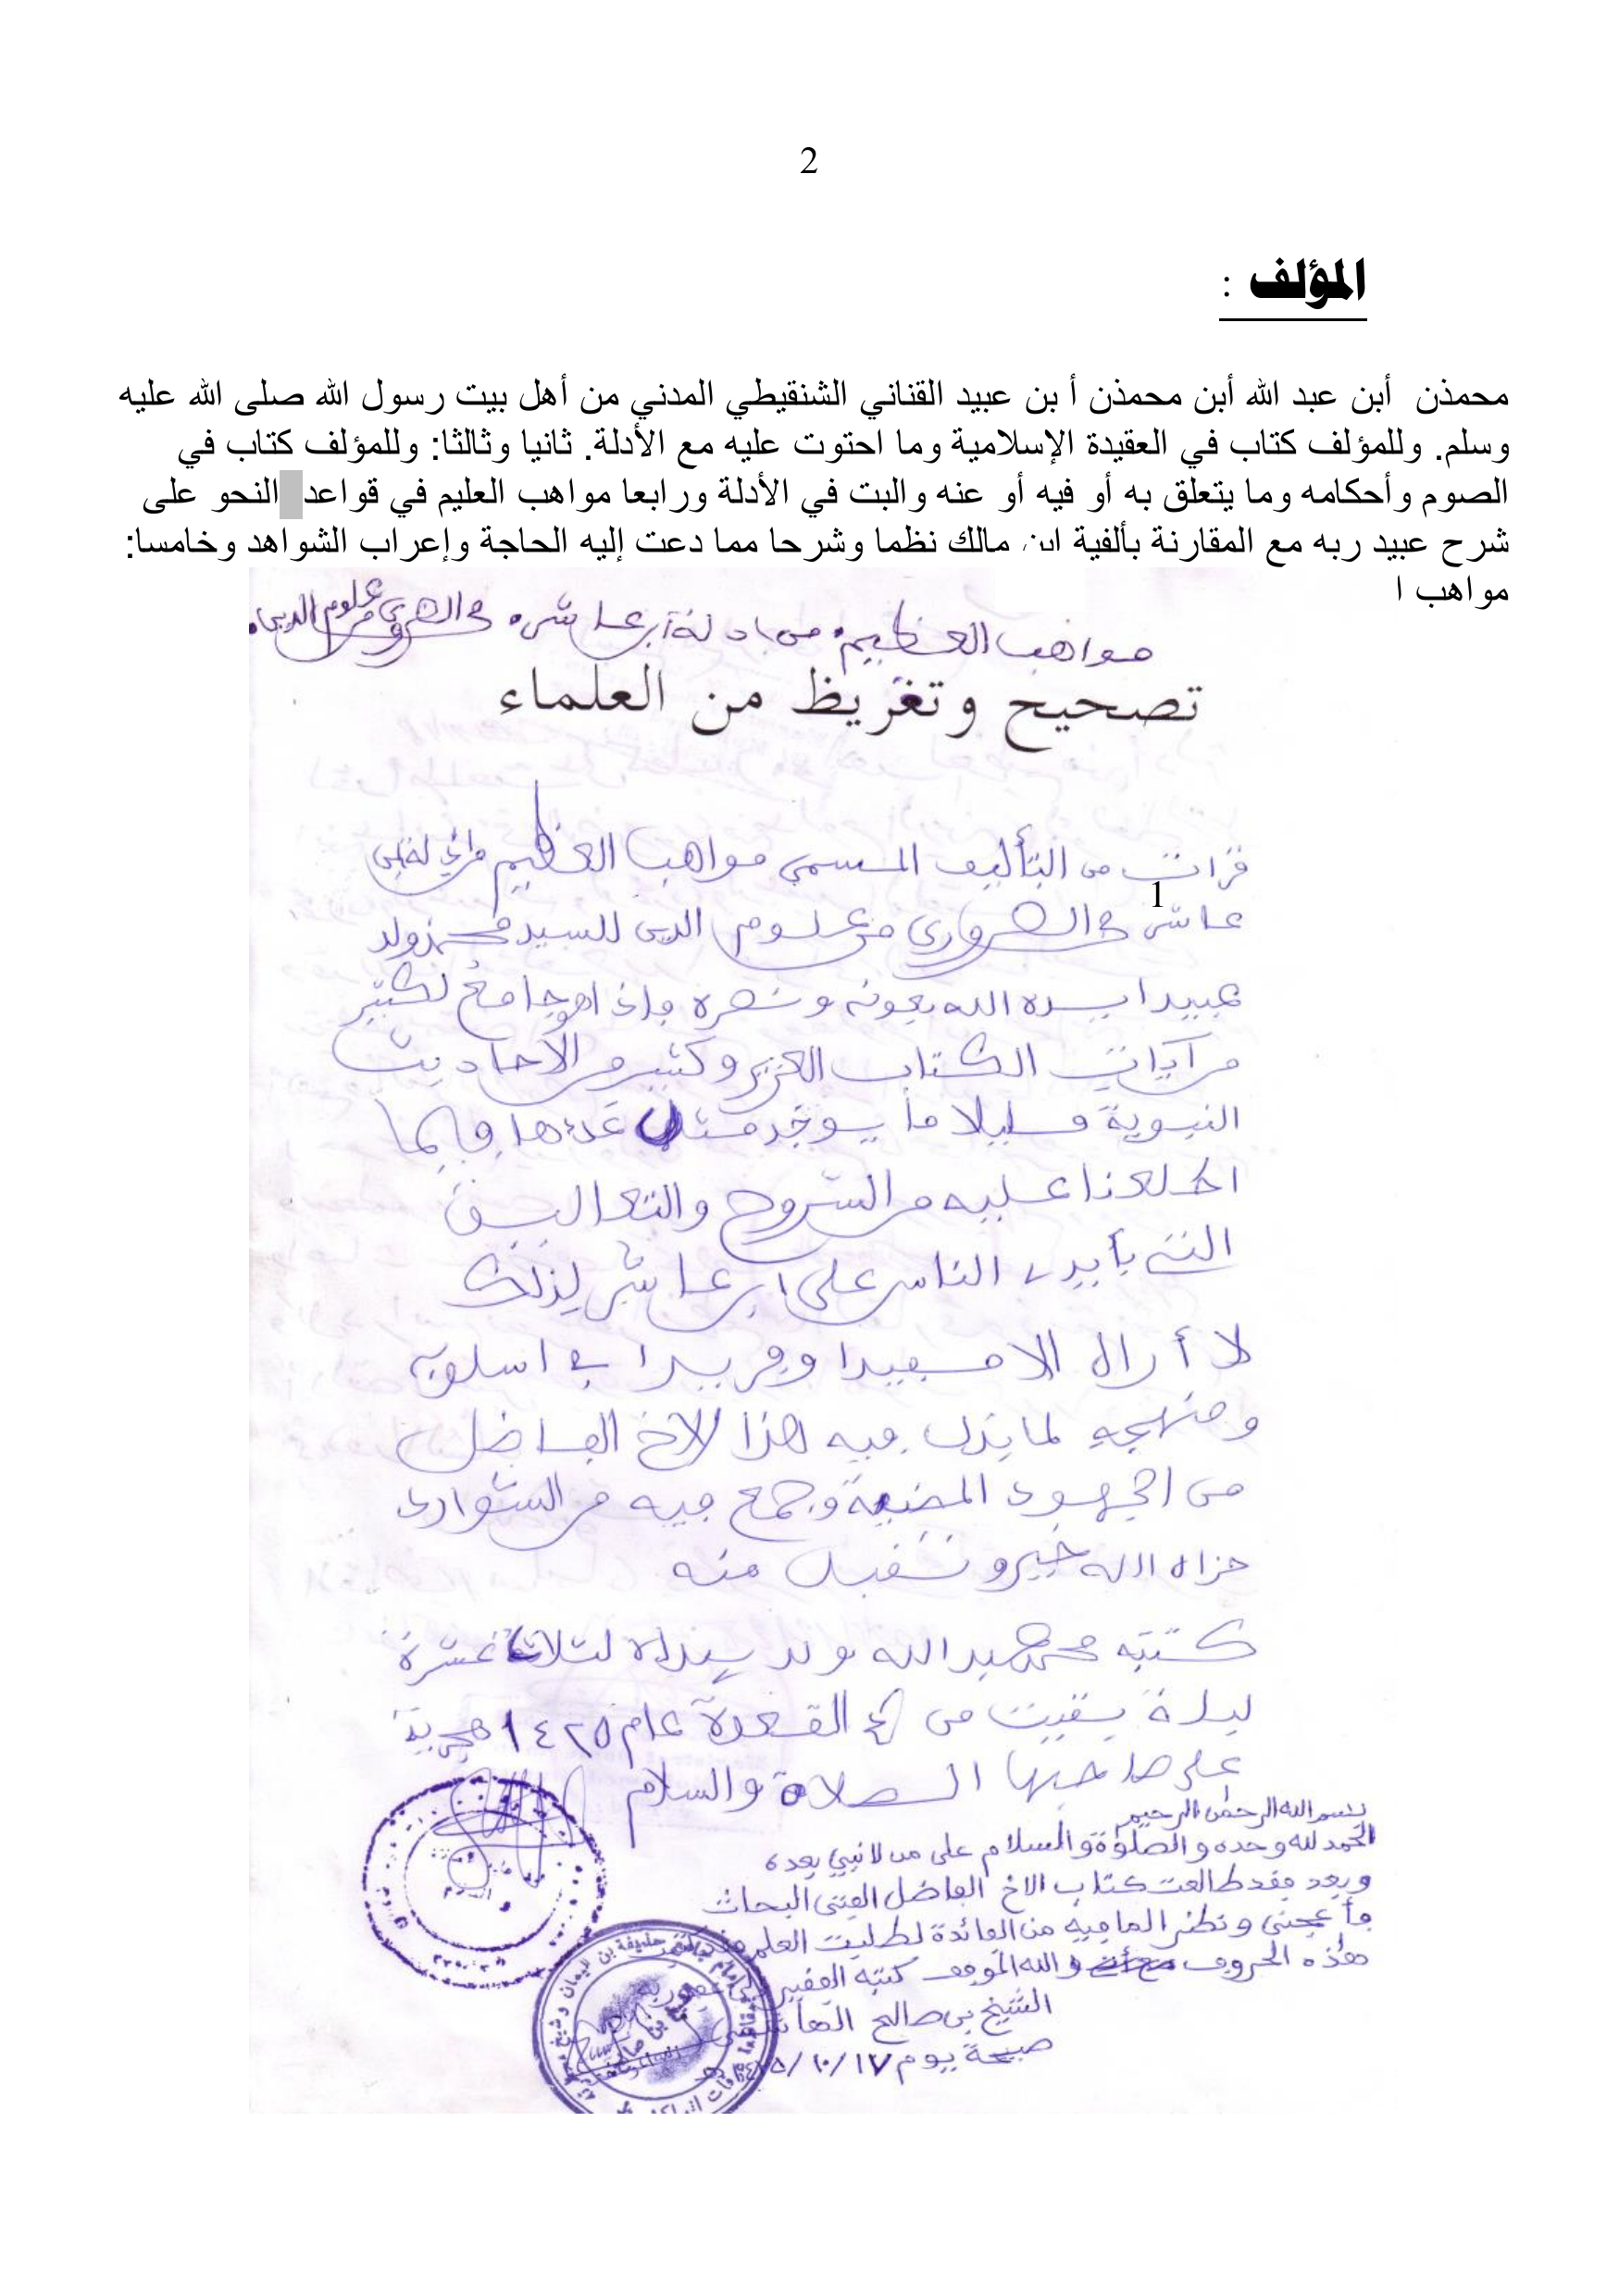 2
المؤلف :
محمذن أبن عبد الله أبن محمذن أ بن عبيد القناني الشنقيطي المدني من أهل بيت رسول الله صلى الله عليه
وسلم. وللمؤلف كتاب في العقيدة الإسلامية وما احتوت عليه مع الأدلة. ثانيا وثالثا: وللمؤلف كتاب في
الصوم وأحكامه وما يتعلق به أو فيه أو عنه والبت في الأدلة ورابعا مواهب العليم في قواعد النحو على
شرح عبيد ربه مع المقارنة بألفية ابن مالك نظما وشرحا مما دعت إليه الحاجة وإعراب الشواهد وخامسا:
مواهب ا
مواهب العظيم من ادلة ابن عاشر في الضروي من علوم الدين
تصحيح وتغريظ من العلماء
قرات من التأليف المسمى مواهب العظيم من ادلة ابن
1
عاشر في الضروري من علوم الدين للسيد محمذ ولد
عبيد ايده الله بعونه ونصره فإذا هو جامع لكثير
من آيات الكتاب العزيز وكثير من الأحاديث
النبوية قليلا ما يوجد مثل عددها فيما
اطلعنا عليه من الشروح والتعاليق
التي بأيدي الناس على ابن عاشر لذلك
لا أراه الا مفيدا وفريدا في اسلوبه
ومنهجه لما بذل فيه هذا الاخ الفاضل
من الجهود المضنية وجمع فيه من الشوارد
جزاه الله خير وتقبل منه
كتبه محمد عبد الله ولد لثلاث عشرة
ليلة بقيت من ذي القعدة عام ١٤٢٥ هجرية
على صاحبها الصلاة والسلام
بسم الله الرحمن الرحيم
الحمد لله وحده والصلوة والسلام على من لا نبي بعده
وبعد فقد طالعت كتاب الاخ الفاضل الفتى البحاث
فأعجبني ونظرا لما فيه من الفائدة لطلبة العلم
هذه الحروف والله الموفق كتبه الفقير إلى عفو ربه
الشيخ بن صالح الهاشمي
صبيحة يوم ١٧/١٠/